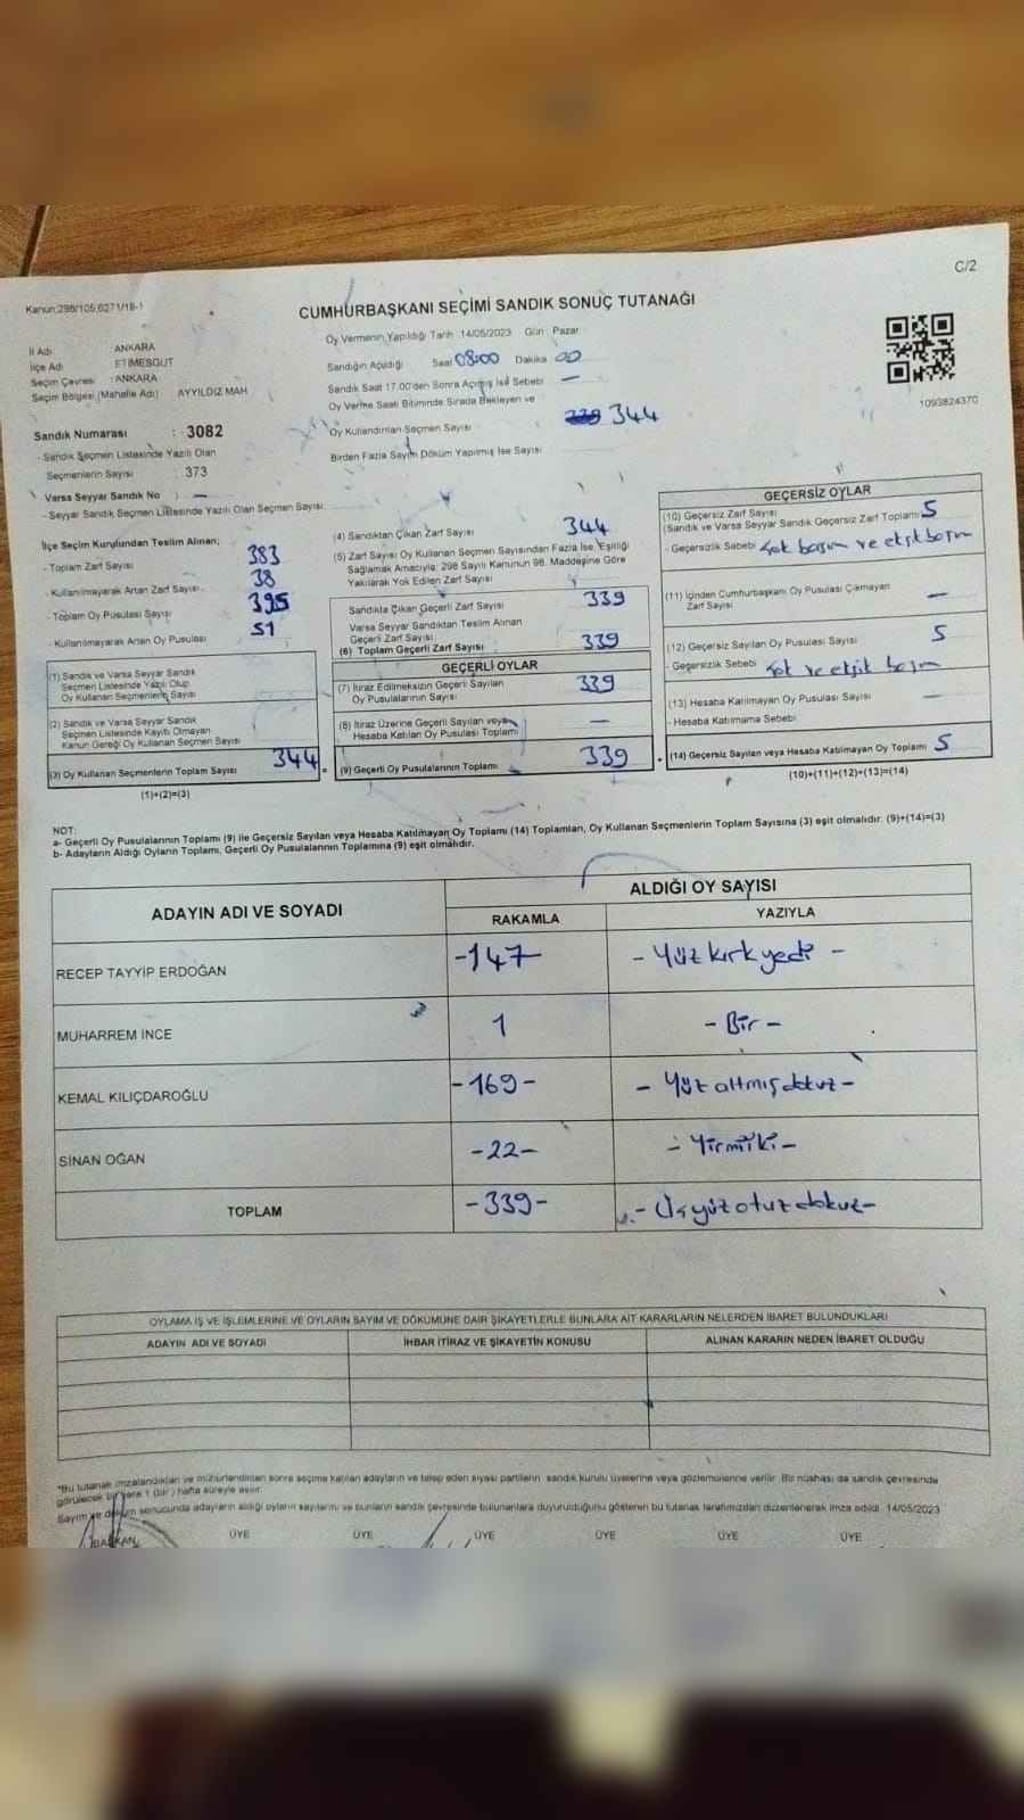 C/2
Kanun:298/105,6271/18-1
CUMHURBAŞKANI SEÇİMİ SANDIK SONUÇ TUTANAĞI
İl Adı : ANKARA
İlçe Adı : ETİMESGUT
Seçim Çevresi : ANKARA
Seçim Bölgesi (Mahalle Adı) AYYILDIZ MAH
Oy Vermenin Yapıldığı Tarih : 14/05/2023 Gün : Pazar
Sandığın Açıldığı Saat 08:00 Dakika 00
Sandık Saat 17.00'den Sonra Açılmış İse Sebebi —
Oy Verme Saati Bitiminde Sırada Bekleyen ve
Oy Kullandırılan Seçmen Sayısı 344
Birden Fazla Sayım Döküm Yapılmış İse Sayısı
1093824370
Sandık Numarası : 3082
- Sandık Seçmen Listesinde Yazılı Olan
Seçmenlerin Sayısı : 373
Varsa Seyyar Sandık No : —
- Seyyar Sandık Seçmen Listesinde Yazılı Olan Seçmen Sayısı:
İlçe Seçim Kurulundan Teslim Alınan;
- Toplam Zarf Sayısı 383
- Kullanılmayarak Artan Zarf Sayısı 38
- Toplam Oy Pusulası Sayısı 395
- Kullanılmayarak Artan Oy Pusulası 51
(1) Sandık ve Varsa Seyyar Sandık
Seçmen Listesinde Yazılı Olup
Oy Kullanan Seçmenlerin Sayısı
(2) Sandık ve Varsa Seyyar Sandık
Seçmen Listesinde Kayıtlı Olmayan
Kanun Gereği Oy Kullanan Seçmen Sayısı
(3) Oy Kullanan Seçmenlerin Toplam Sayısı 344
(1)+(2)=(3)
(4) Sandıktan Çıkan Zarf Sayısı 344
(5) Zarf Sayısı Oy Kullanan Seçmen Sayısından Fazla İse, Eşitliği
Sağlamak Amacıyla; 298 Sayılı Kanunun 98. Maddesine Göre
Yakılarak Yok Edilen Zarf Sayısı
Sandıkta Çıkan Geçerli Zarf Sayısı 339
Varsa Seyyar Sandıktan Teslim Alınan
Geçerli Zarf Sayısı
(6) Toplam Geçerli Zarf Sayısı 339
GEÇERLİ OYLAR
(7) İtiraz Edilmeksizin Geçerli Sayılan
Oy Pusulalarının Sayısı 339
(8) İtiraz Üzerine Geçerli Sayılan veya
Hesaba Katılan Oy Pusulası Toplamı —
(9) Geçerli Oy Pusulalarının Toplamı 339
GEÇERSİZ OYLAR
(10) Geçersiz Zarf Sayısı
(Sandık ve Varsa Seyyar Sandık Geçersiz Zarf Toplamı) 5
- Geçersizlik Sebebi çok basım ve ekşit basım
(11) İçinden Cumhurbaşkanı Oy Pusulası Çıkmayan
Zarf Sayısı —
(12) Geçersiz Sayılan Oy Pusulası Sayısı 5
- Geçersizlik Sebebi çok ve ekşit basım
(13) Hesaba Katılmayan Oy Pusulası Sayısı —
- Hesaba Katılmama Sebebi
(14) Geçersiz Sayılan veya Hesaba Katılmayan Oy Toplamı 5
(10)+(11)+(12)+(13)=(14)
NOT:
a- Geçerli Oy Pusulalarının Toplamı (9) ile Geçersiz Sayılan veya Hesaba Katılmayan Oy Toplamı (14) Toplamları, Oy Kullanan Seçmenlerin Toplam Sayısına (3) eşit olmalıdır. (9)+(14)=(3)
b- Adayların Aldığı Oyların Toplamı, Geçerli Oy Pusulalarının Toplamına (9) eşit olmalıdır.
ADAYIN ADI VE SOYADI ALDIĞI OY SAYISI
RAKAMLA YAZIYLA
RECEP TAYYİP ERDOĞAN -147- - Yüz kırk yedi -
MUHARREM İNCE 1 - Bir -
KEMAL KILIÇDAROĞLU -169- - Yüz altmış dokuz -
SİNAN OĞAN -22- - Yirmiiki -
TOPLAM -339- - Üçyüzotuzdokuz -
OYLAMA İŞ VE İŞLEMLERİNE VE OYLARIN SAYIM VE DÖKÜMÜNE DAİR ŞİKAYETLERLE BUNLARA AİT KARARLARIN NELERDEN İBARET BULUNDUKLARI
ADAYIN ADI VE SOYADI İHBAR İTİRAZ VE ŞİKAYETİN KONUSU ALINAN KARARIN NEDEN İBARET OLDUĞU
*Bu tutanak imzalandıktan ve mühürlendikten sonra seçime katılan adayların ve talep eden siyasi partilerin sandık kurulu üyelerine veya gözlemcilerine verilir. Bir nüshası da sandık çevresinde
görülecek bir yere 1 (bir) hafta süreyle asılır.
Sayım ve döküm sonucunda adayların aldığı oyların sayılarını ve bunların sandık çevresinde bulunanlara duyurulduğunu gösteren bu tutanak tarafımızdan düzenlenerek imza edildi. 14/05/2023
BAŞKAN ÜYE ÜYE ÜYE ÜYE ÜYE ÜYE